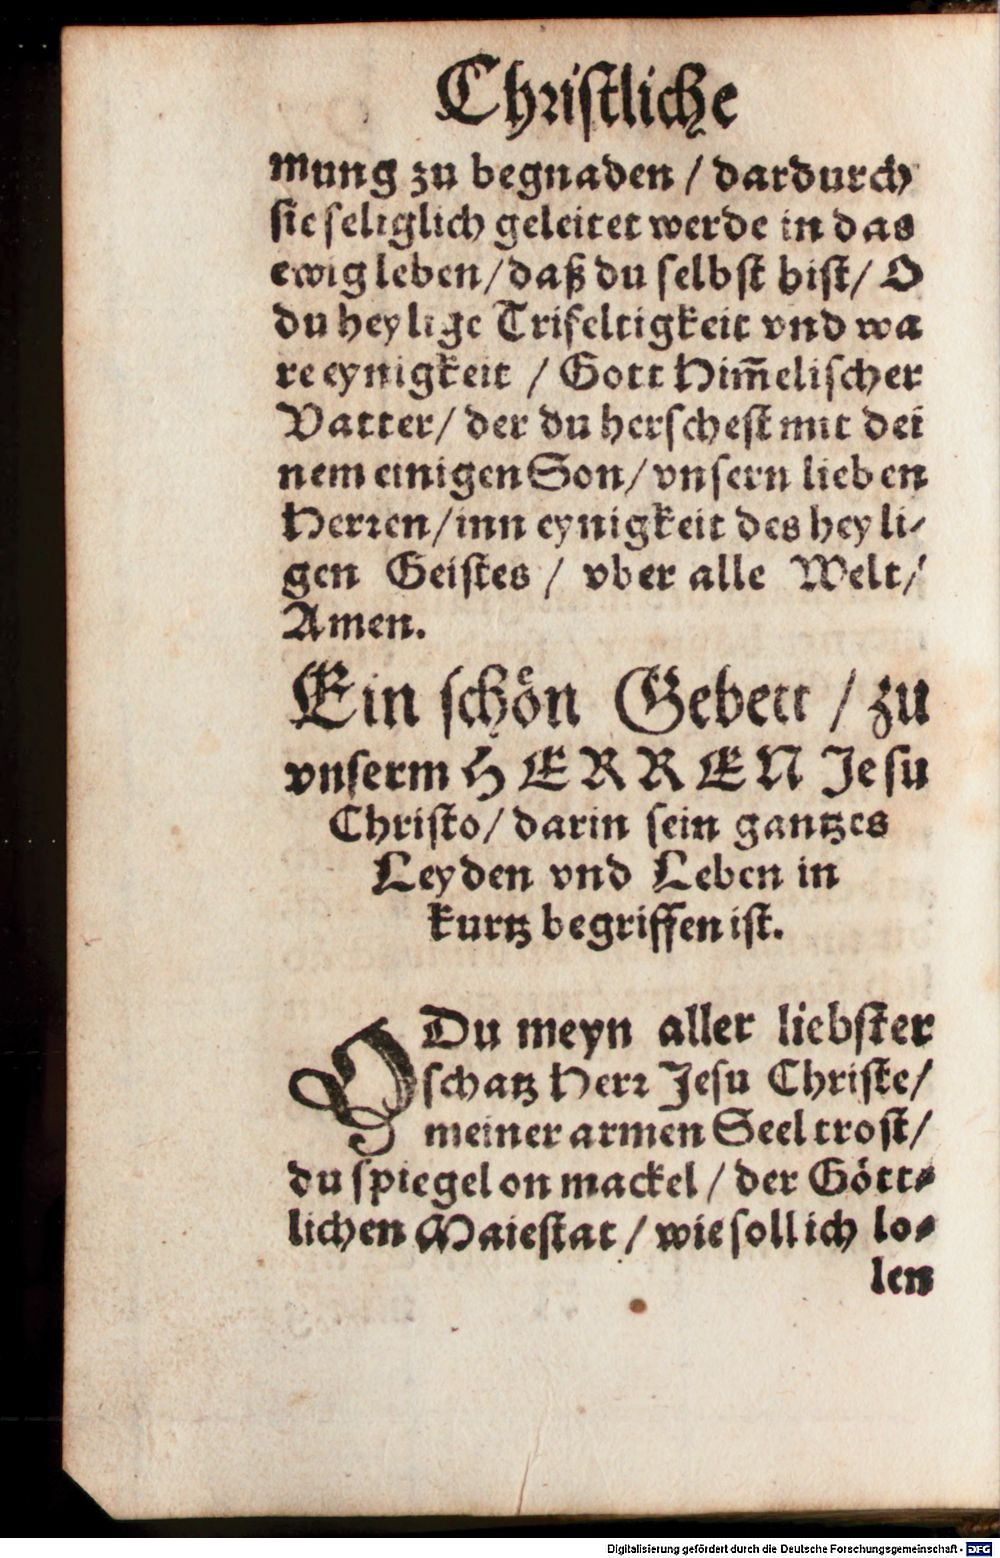 Christliche
mung zu begnaden / dardurch
sie seliglich geleitet werde in das
ewig leben / daß du selbst bist / O
du heylige Trifeltigkeit vnd wa
re eynigkeit / Gott Him̃elischer
Vatter / der du herschest mit dei
nem einigen Son / vnsern lieben
Herren / inn eynigkeit des heyli-
gen Geistes / vber alle Welt /
Amen.
Ein schoͤn Gebett / zu
vnserm HERREN Jesu
Christo / darin sein gantzes
Leyden vnd Leben in
kurtz begriffen ist.
O Du meyn aller liebster
schatz Herr Jesu Christe /
meiner armen Seel trost /
du spiegel on mackel / der Goͤtt-
lichen Maiestat / wie soll ich lo-
len
Digitalisierung gefördert durch die Deutsche Forschungsgemeinschaft - DFG